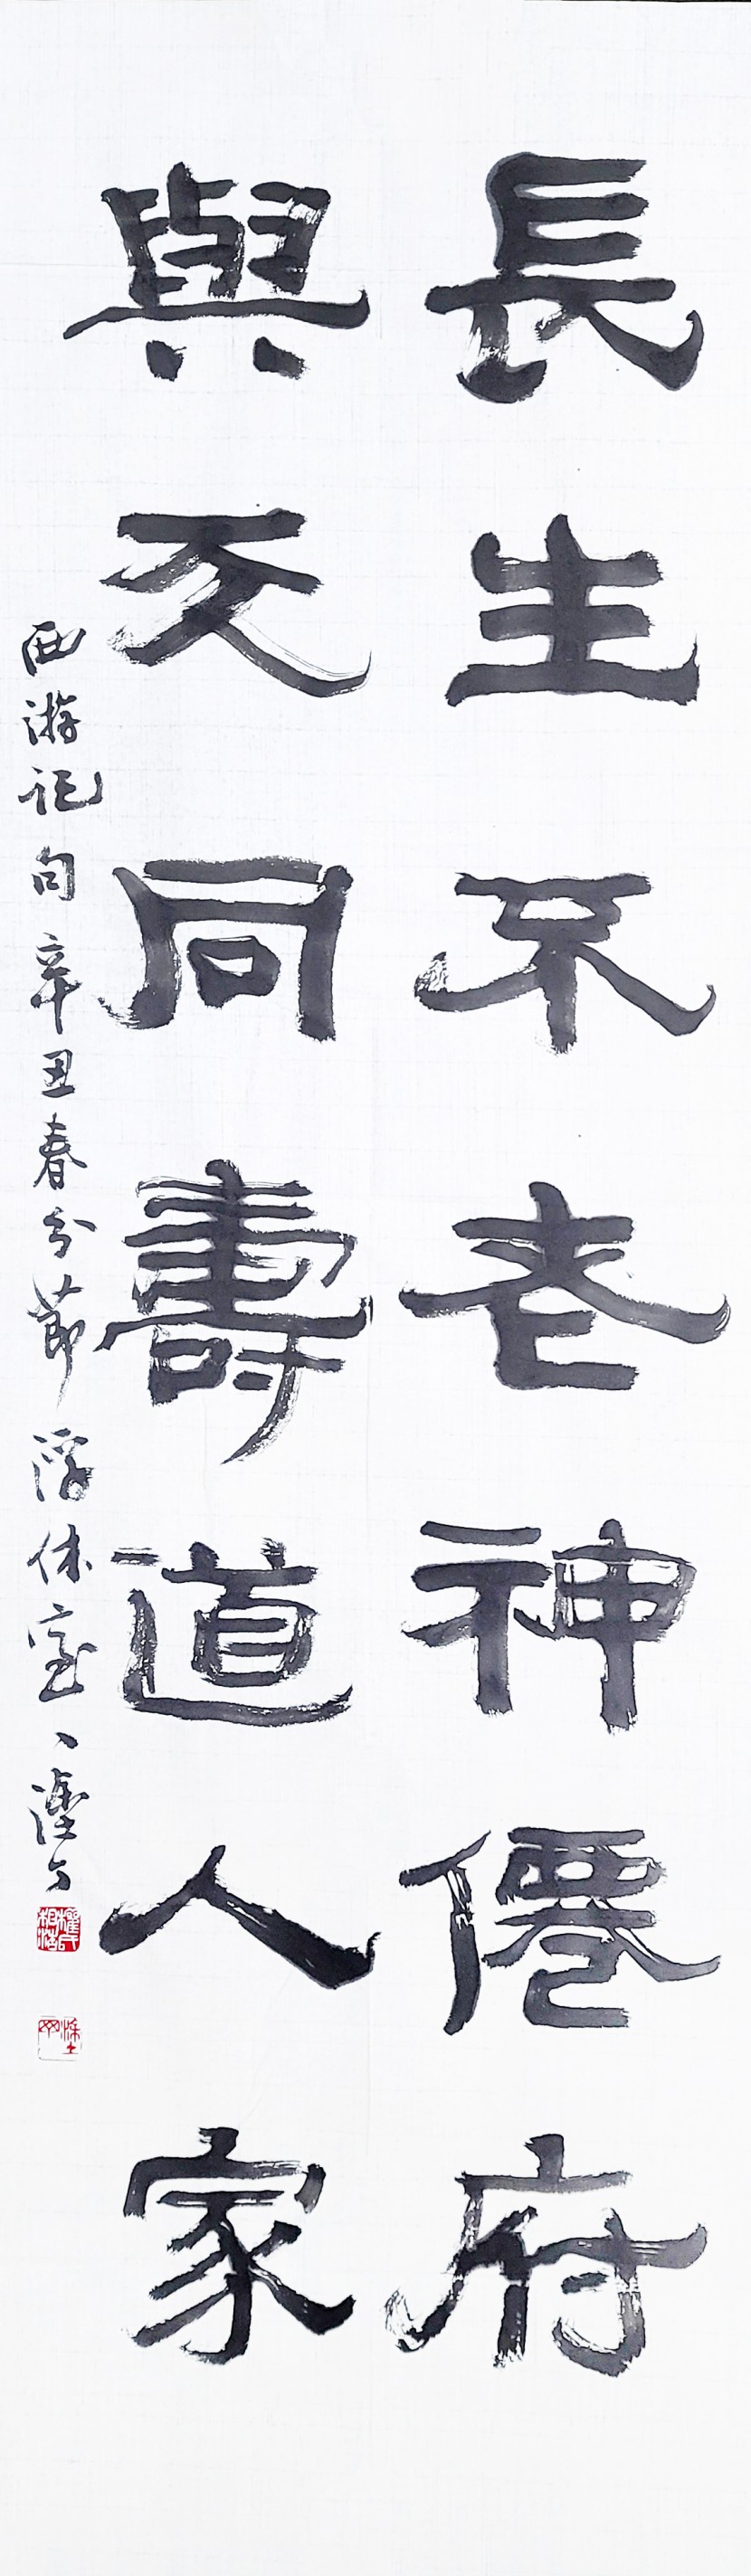 長生不老神僊府
與天同壽道人家
西游記句辛丑春分節浮休室